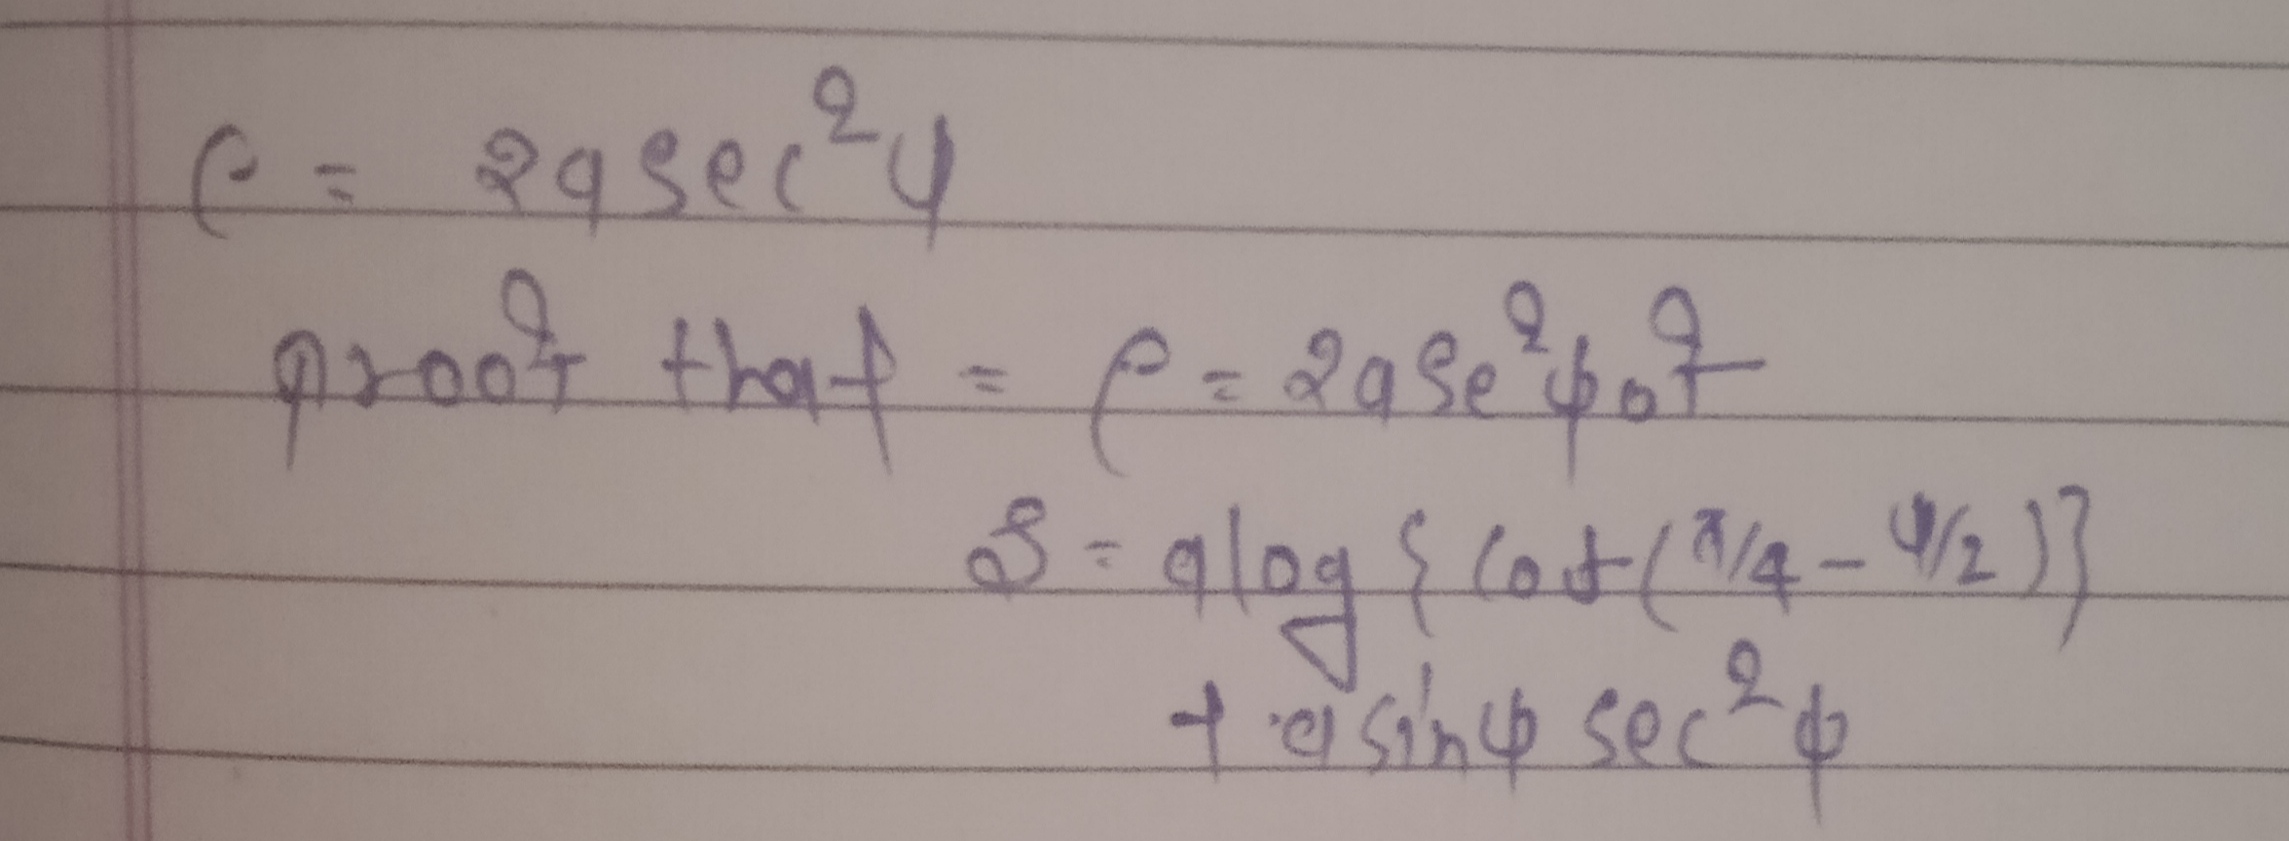 ρ = 2a sec²ψ
proof that = ρ = 2a se²ψ of
S = a log {cot(π/4 - ψ/2)}
+ a sinψ sec²ψ